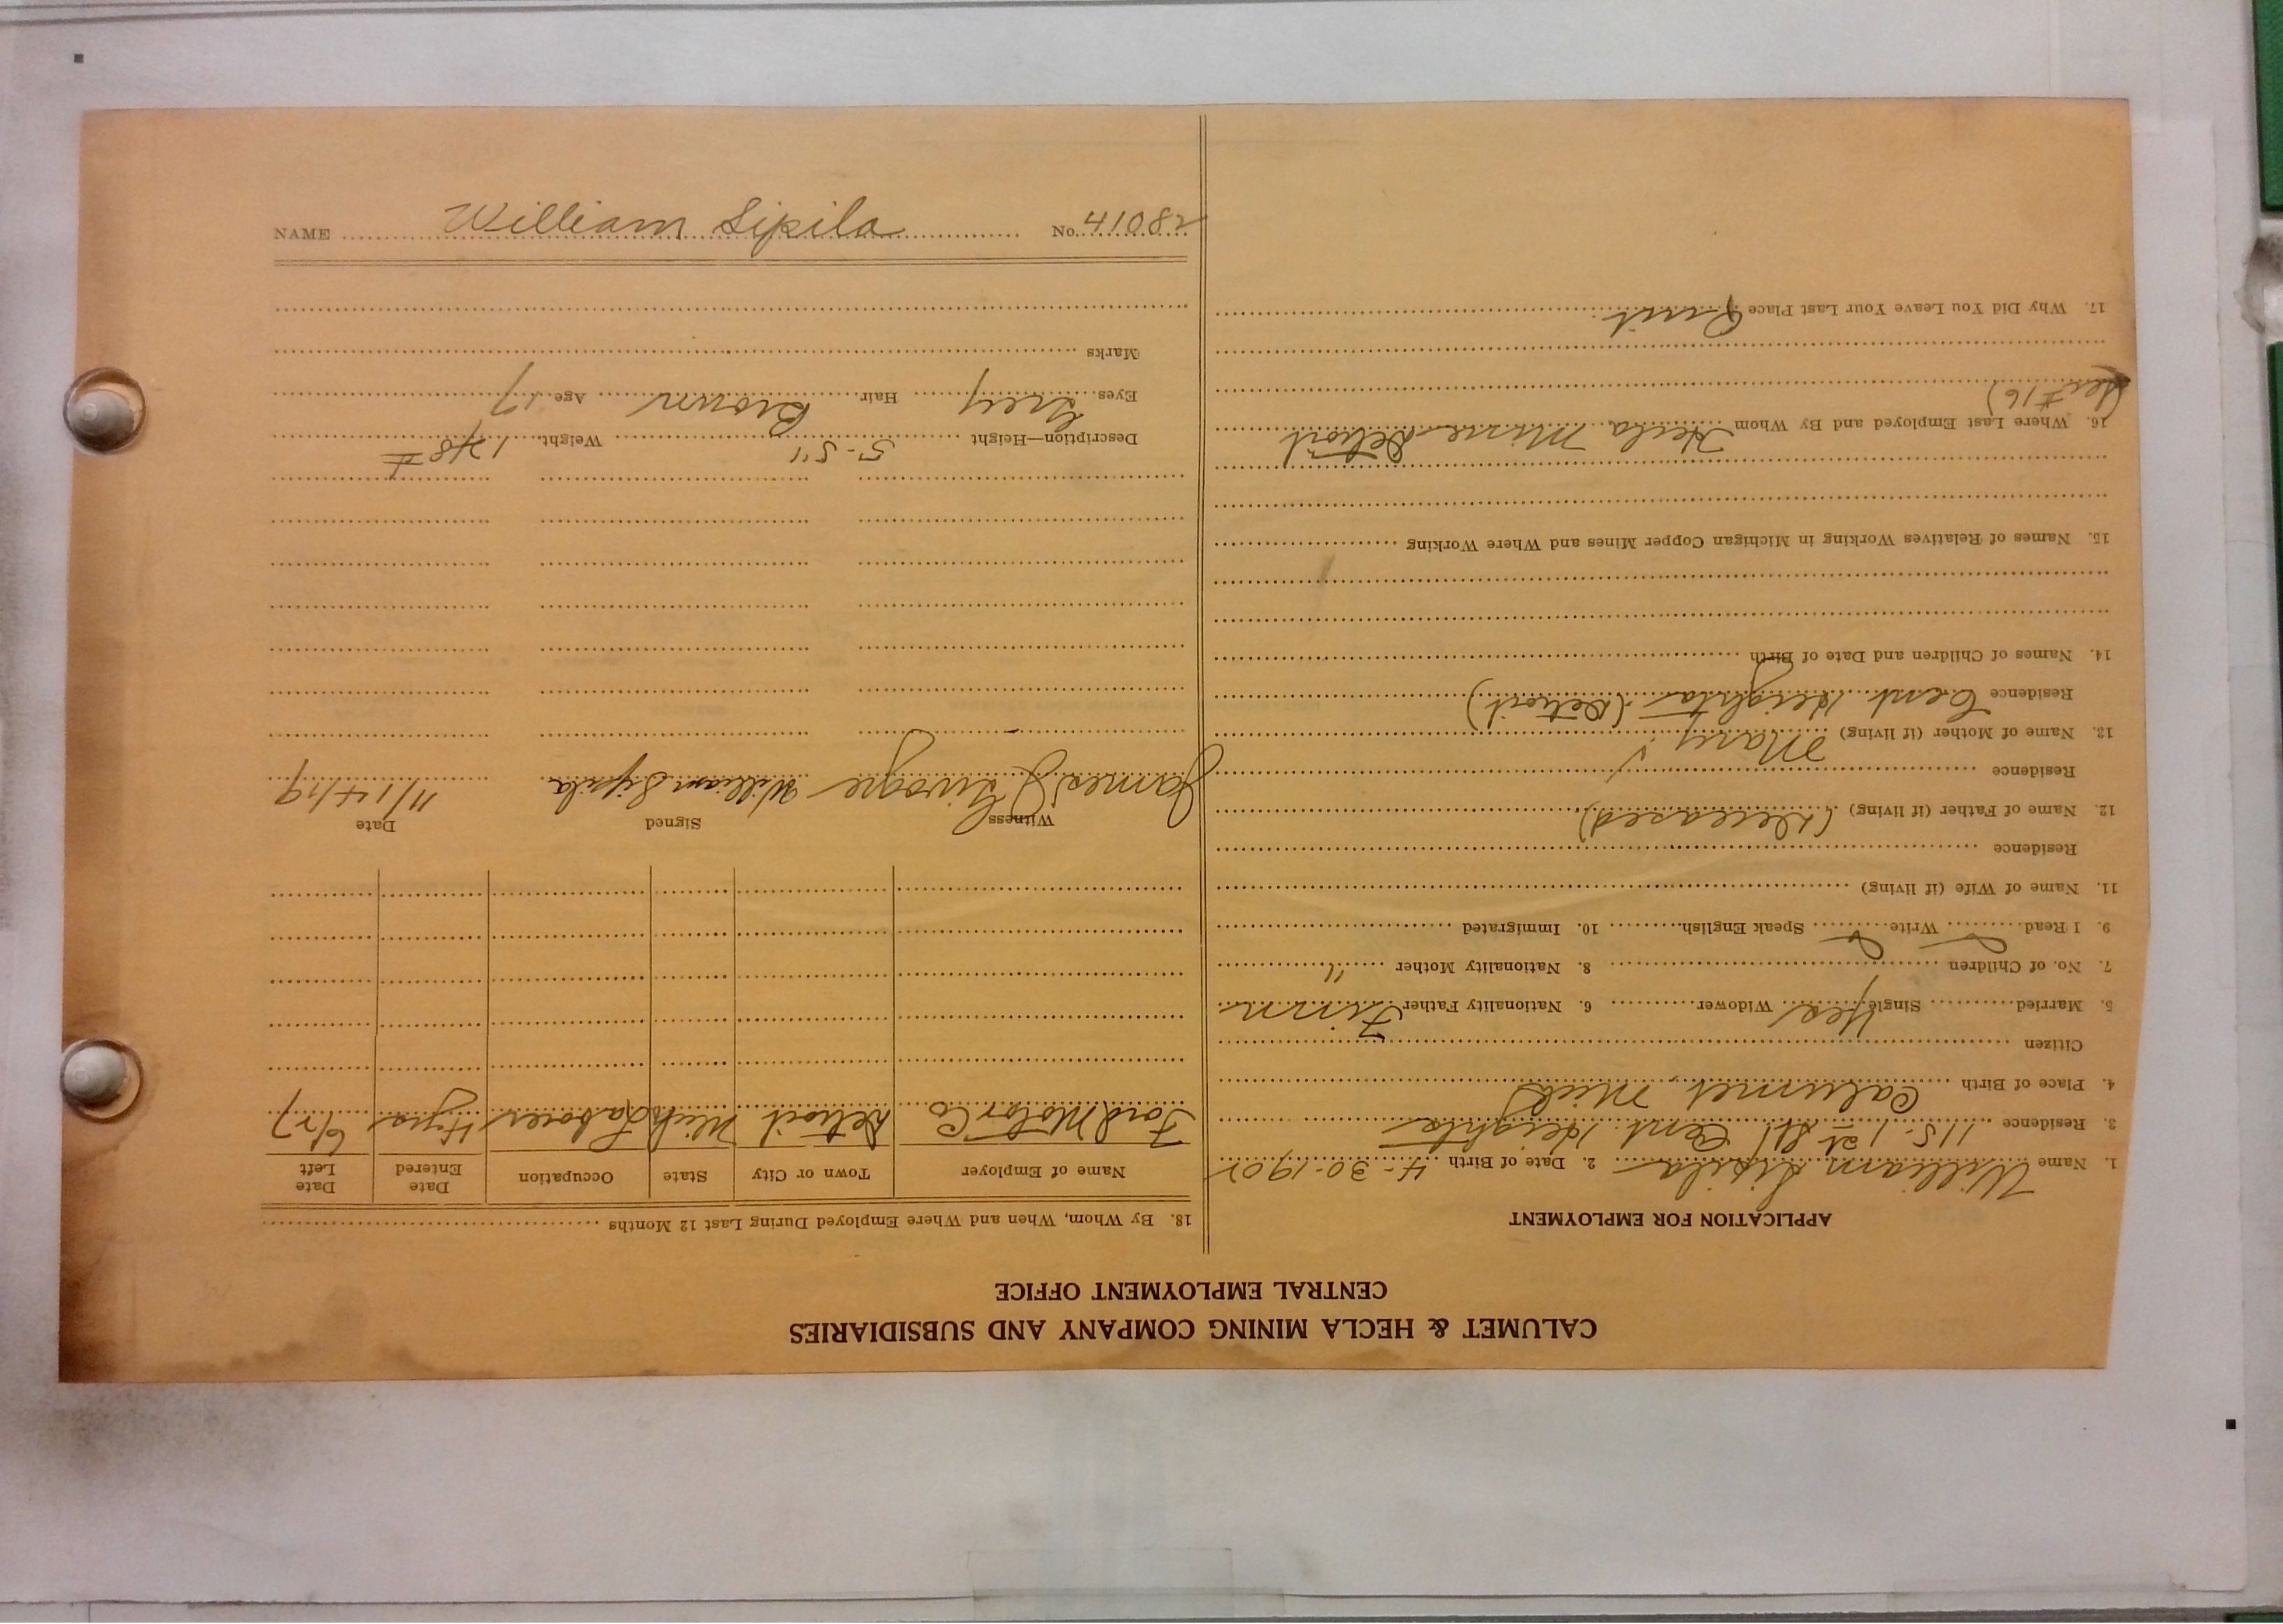 CALUMET & HECLA MINING COMPANY AND SUBSIDIARIES
CENTRAL EMPLOYMENT OFFICE
APPLICATION FOR EMPLOYMENT
1. Name William Sipila 2. Date of Birth 4-30-1902
3. Residence 115-1st St. Cent. Heights
4. Place of Birth Calumet, Mich
Citizen
5. Married Single Yes Widower 6. Nationality Father Finn
7. No. of Children 8. Nationality Mother "
9. I Read Write Speak English 10. Immigrated
11. Name of Wife (if living)
Residence
12. Name of Father (if living) (Deceased)
Residence
13. Name of Mother (if living) Mary
Residence Cent. Heights (Detroit)
14. Names of Children and Date of Birth
15. Names of Relatives Working in Michigan Copper Mines and Where Working
16. Where Last Employed and By Whom Hecla Mine Detroit
#16)
17. Why Did You Leave Your Last Place Quit
18. By Whom, When and Where Employed During Last 12 Months
Name of Employer Town or City State Occupation Date Entered Date Left
Ford Motor Co Detroit Mich Laborer 6/27
Witness Signed Date
James William Sipila 11/14/19
Description—Height 5-5" Weight 148#
Eyes Grey Hair Brown Age 17
Marks
NAME William Sipila No. 41082